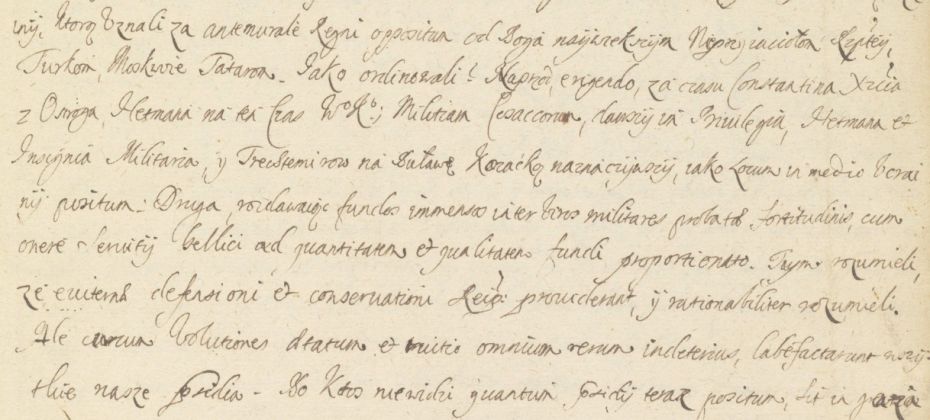 inij, ktorą Uznali za antemurale Regni oppositum od Boga naijwiekszijm Nieprzijaciołom Rzptey,
Turkom, Moskwie Tatarom. Jako ordinowali? Naprzod, erigendo, za czasu Constantina Xcia
z Ostroga, Hetmana na ten czas WoKo; Militiam Cosaccorum, dawszij iń Privilegia, Hetmana et
Insignia Militaria, ij Trechtemirow na Buławę Kozacką naznaczijwszij, iako Locum in medio Ucrai
nij positum: Druga, rozdawaiąc fundos immensos inter Viros militares probatæ fortitudinis, cum
onere servitij bellici ad quantitatem et qualitatem fundi proportionato. Tijm rozumieli,
że æviternæ defensioni et conservationi Reip: providerant, ij rationabiliter rozumieli.
Ale circum Volutiones ætatum et omnium rerum in deterius, labefactarunt wszij
tkie nasze præsidia. Bo ktos niewidzi quantum præsidij teraz positum, sit in